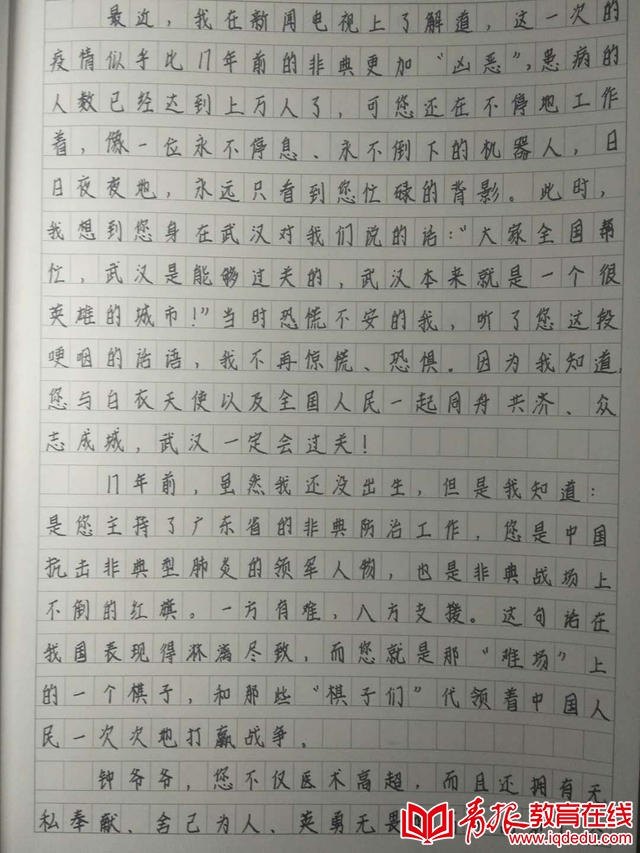 最近，我在新闻电视上了解道，这一次的
疫情似乎比17年前的非典更加“凶恶”，患病的
人数已经达到上万人了，可您还在不停地工作
着，像一位永不停息、永不倒下的机器人，日
日夜夜地，永远只看到您忙碌的背影。此时，
我想到您身在武汉对我们说的话：“大家全国帮
忙，武汉是能够过关的，武汉本来就是一个很
英雄的城市！”当时恐慌不安的我，听了您这段
哽咽的话语，我不再惊慌、恐惧。因为我知道，
您与白衣天使以及全国人民一起同舟共济、众
志成城，武汉一定会过关！
17年前，虽然我还没出生，但是我知道：
是您主持了广东省的非典防治工作，您是中国
抗击非典型肺炎的领军人物，也是非典战场上
不倒的红旗。一方有难，八方支援。这句话在
我国表现得淋漓尽致，而您就是那“难场”上
的一个棋子，和那些“棋子们”代领着中国人
民一次次地打赢战争。
钟爷爷，您不仅医术高超，而且还拥有无
私奉献、舍己为人、英勇无畏
青报教育在线
www.iqdedu.com